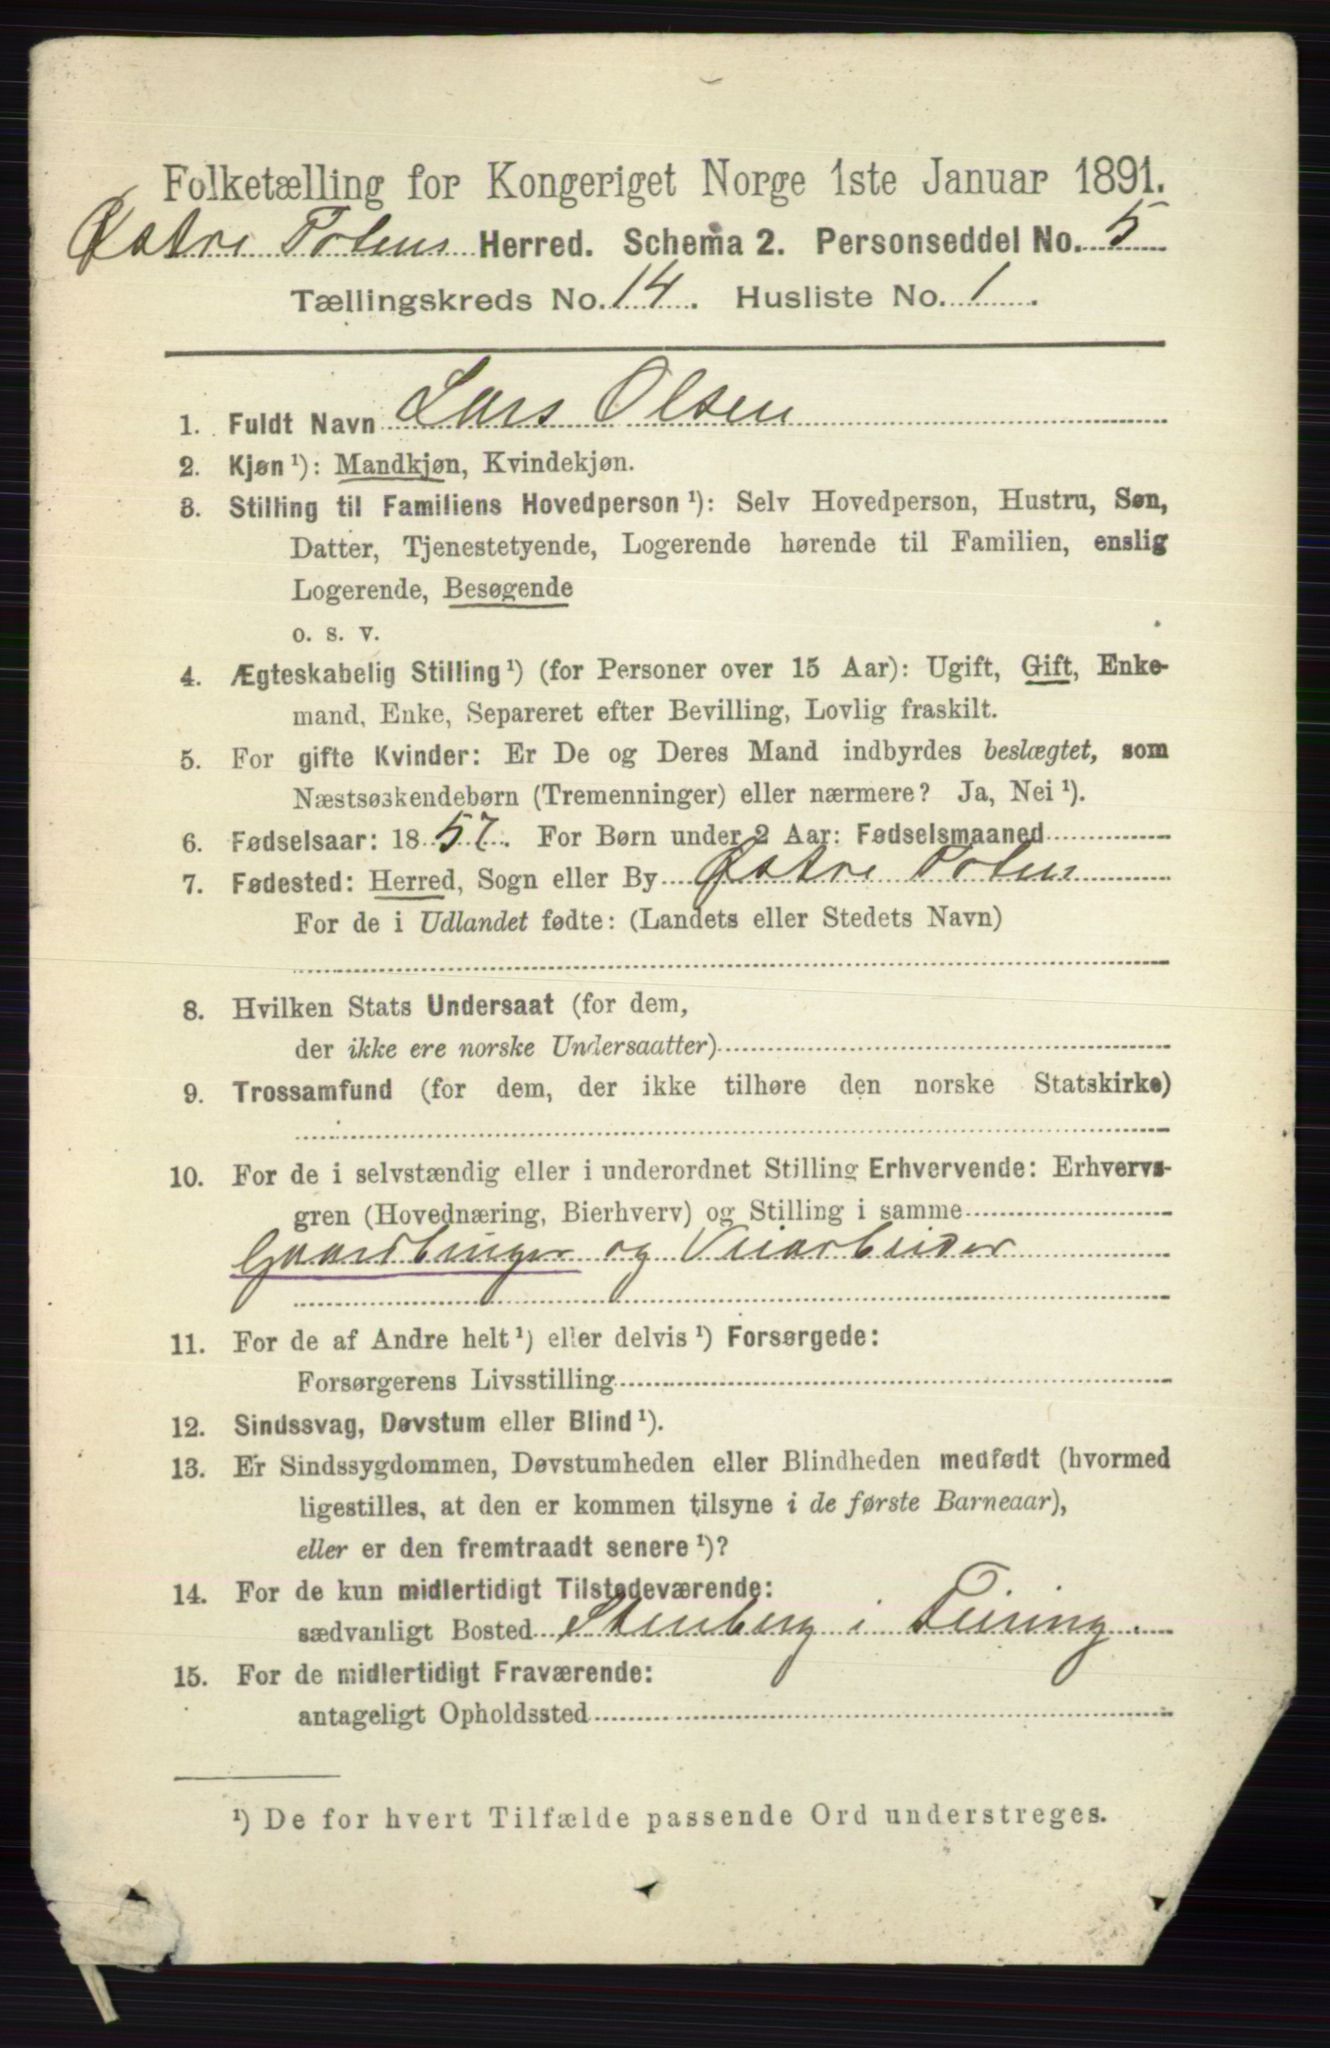 Folketælling for Kongeriget Norge 1ste Januar 1891.
Østre Toten Herred. Schema 2. Personseddel No. 5
Tællingskreds No. 14. Husliste No. 1.
1. Fuldt Navn Lars Olsen
2. Kjøn ¹): Mandkjøn, Kvindekjøn.
3. Stilling til Familiens Hovedperson ¹): Selv Hovedperson, Hustru, Søn,
Datter, Tjenestetyende, Logerende hørende til Familien, enslig
Logerende, Besøgende
o. s. v.
4. Ægteskabelig Stilling ¹) (for Personer over 15 Aar): Ugift, Gift, Enke-
mand, Enke, Separeret efter Bevilling, Lovlig fraskilt.
5. For gifte Kvinder: Er De og Deres Mand indbyrdes beslægtet, som
Næstsøskendebørn (Tremenninger) eller nærmere? Ja, Nei ¹).
6. Fødselsaar: 1857. For Børn under 2 Aar: Fødselsmaaned
7. Fødested: Herred, Sogn eller By Østre Toten
For de i Udlandet fødte: (Landets eller Stedets Navn)
8. Hvilken Stats Undersaat (for dem,
der ikke ere norske Undersaatter)
9. Trossamfund (for dem, der ikke tilhøre den norske Statskirke)
10. For de i selvstændig eller i underordnet Stilling Erhvervende: Erhvervs-
gren (Hovednæring, Bierhverv) og Stilling i samme
Gaardbruger og Veiarbeider
11. For de af Andre helt ¹) eller delvis ¹) Forsørgede:
Forsørgerens Livsstilling
12. Sindssvag, Døvstum eller Blind ¹).
13. Er Sindssygdommen, Døvstumheden eller Blindheden medfødt (hvormed
ligestilles, at den er kommen tilsyne i de første Barneaar),
eller er den fremtraadt senere ¹)?
14. For de kun midlertidigt Tilstedeværende:
sædvanligt Bosted Stenberg i Feiring.
15. For de midlertidigt Fraværende:
antageligt Opholdssted
¹) De for hvert Tilfælde passende Ord understreges.